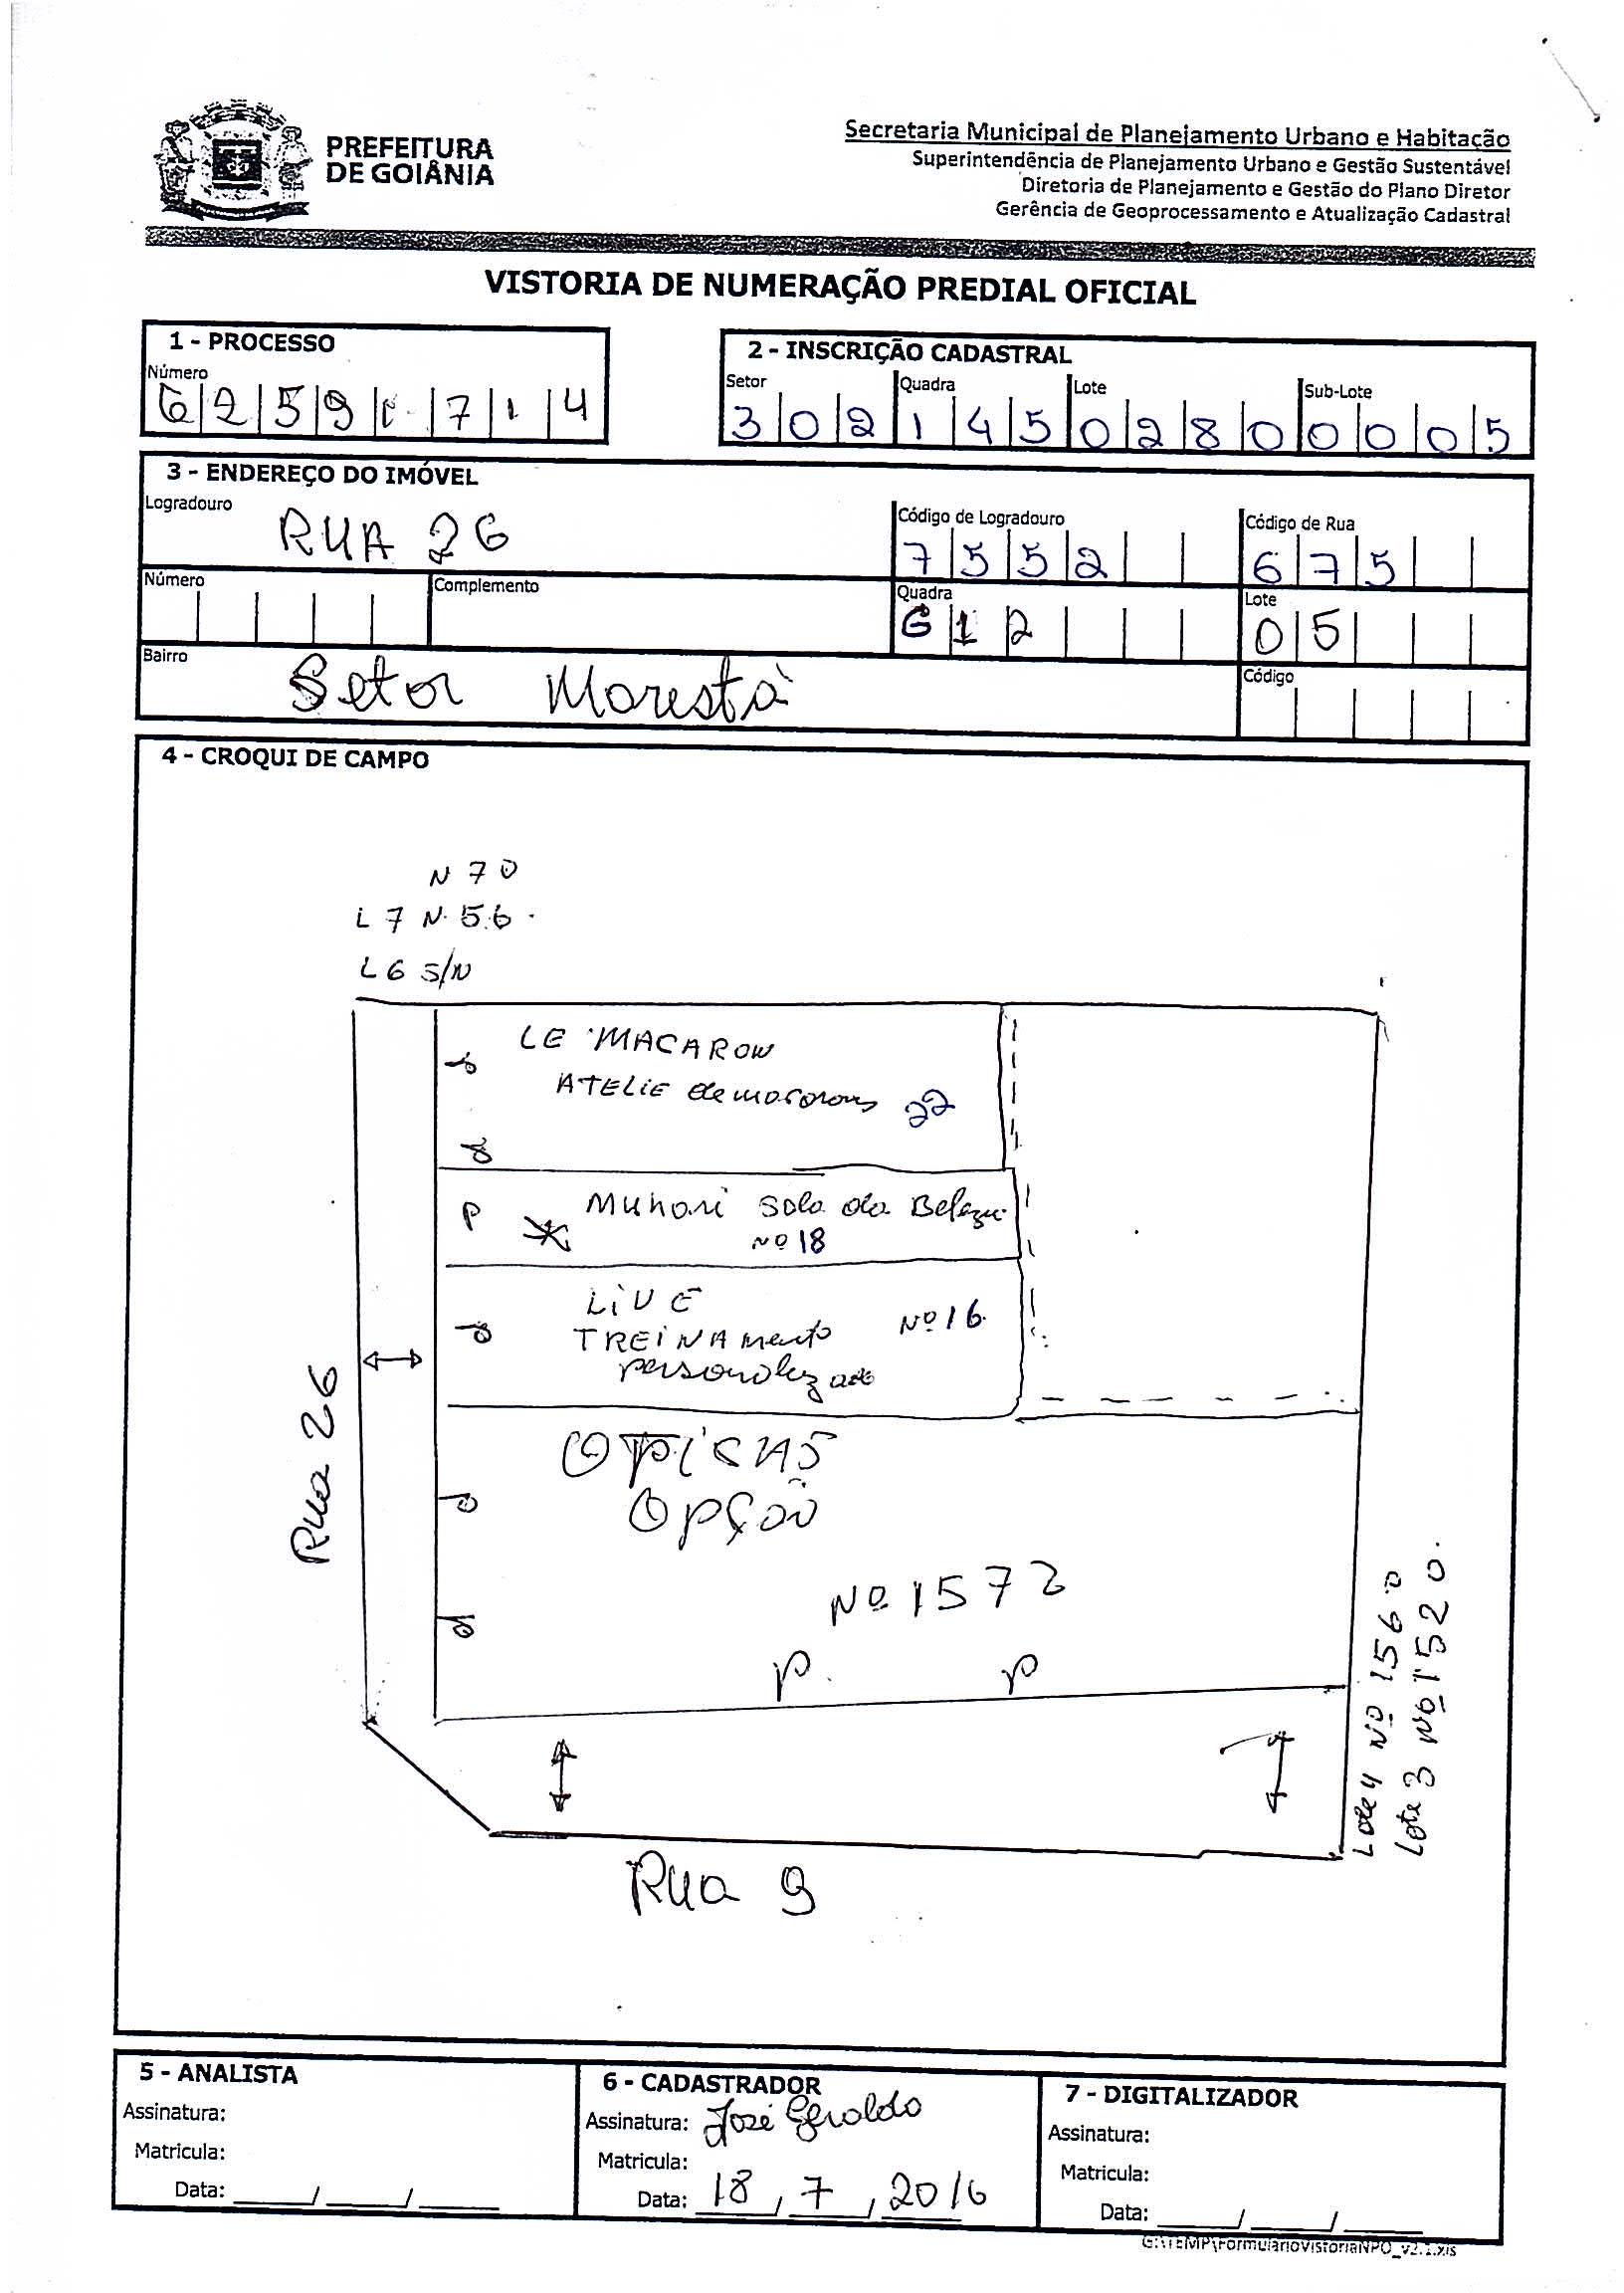 PREFEITURA
DE GOIÂNIA
Secretaria Municipal de Planejamento Urbano e Habitação
Superintendência de Planejamento Urbano e Gestão Sustentável
Diretoria de Planejamento e Gestão do Plano Diretor
Gerência de Geoprocessamento e Atualização Cadastral
VISTORIA DE NUMERAÇÃO PREDIAL OFICIAL
1 - PROCESSO
Número
6 2 5 9 7 1 4
2 - INSCRIÇÃO CADASTRAL
Setor Quadra Lote Sub-Lote
3 0 2 1 4 5 0 2 8 0 0 0 0 5
3 - ENDEREÇO DO IMÓVEL
Logradouro
RUA 26
Código de Logradouro
7 5 5 2
Código de Rua
6 7 5
Número
Complemento
Quadra
G 1 2
Lote
0 5
Bairro
Setor
Código
4 - CROQUI DE CAMPO
N 70
L 7 N. 56.
L 6 S/N
LE MACARON
ATELIE de macarons 22
P Munari Sola da Beleza
Nº 18
LIVE
TREINAmento Nº 16
personalizado
Rua 26
OPTICAS
OPÇÃO
Nº 1572
P P
Lote 4 Nº 1560
Lote 3 Nº 1520.
Rua 9
5 - ANALISTA
Assinatura:
Matricula:
Data: ____/____/____
6 - CADASTRADOR
Assinatura: José Geraldo
Matricula:
Data: 18 / 7 / 2016
7 - DIGITALIZADOR
Assinatura:
Matricula:
Data: ____/____/____
G:\TEMP\FormularioVistoriaNPO_v2.1.xls